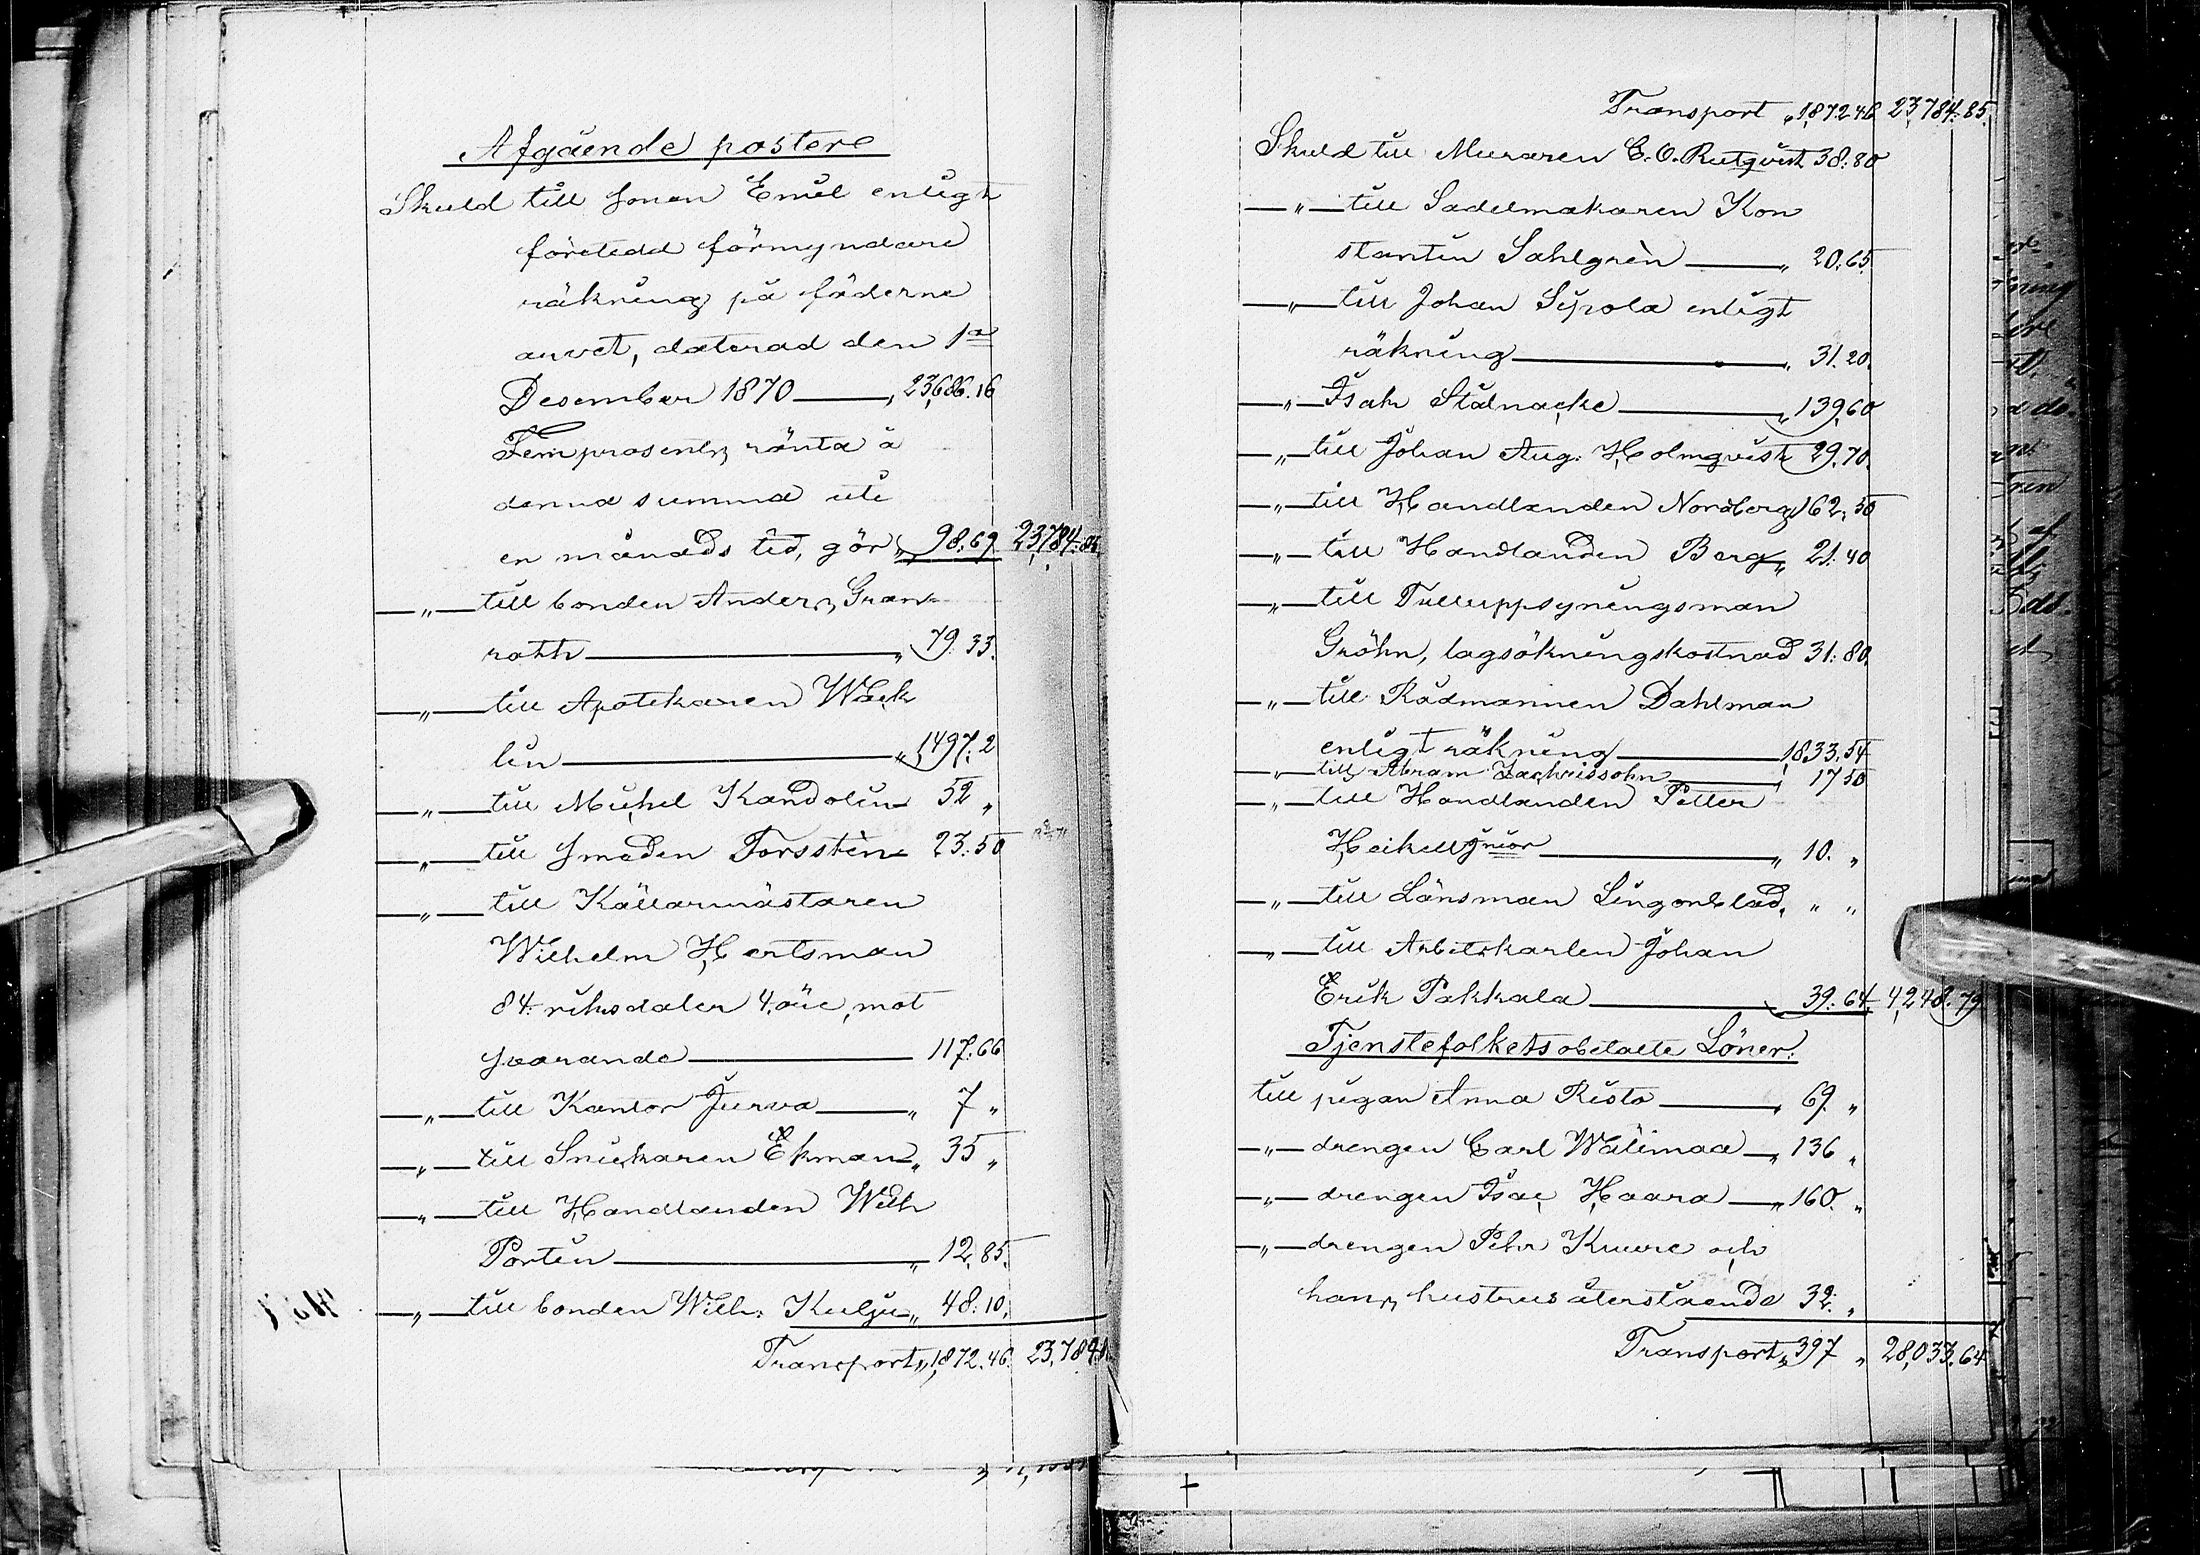 Afgående postere
Skuld till sonen Emil enligt
företedd förmyndare
räkning på fäderne
arvet, daterad den 1ª
Desember 1870 — „ 23,686.16
Fem prosents ränta å
denna summa uti
en månads tid, gör „ 98.69 23,784.85.
— „ — till bonden Anders Gran-
roth — „ 79.33.
— „ — till Apotekaren Wäck
lin — „ 1,497.2
— „ — till Michel Kandolin — 52 „
— „ — till smeden Forsstèn — 23.50
— „ — till Källarmästaren
Wilhelm Hertsman
84 riksdaler 4 öre, mot
svarande — 117.66
— „ — till Kantor Jurva — „ 7 „
— „ — till Snickaren Ekman — „ 35 „
— „ — till Handlanden Wilh
Portin — „ 12.85.
— „ — till bonden Wilh: Kulju — „ 48.10.
Transport „ 1,872.46. 23,784.8
Transport „ 1,872.46 23,784.85.
Skuld till Muraren C. O. Rutqvist 38.80
— „ — till Sadelmakaren Kon
stantin Sahlgrèn — „ 20.65.
— „ — till Johan Sipola enligt
räkning — „ 31.20.
— „ — Isak Stålnacke — „ 139.60
— „ — till Johan Aug: Holmqvist 29.70.
— „ — till Handlanden Nordberg 162.50
— „ — till Handlanden Berg „ 21.40
— „ — till Tulluppsyningsman
Gröhn, lagsökningskostnad 31.80.
— „ — till Rådmannen Dahlman
enligt räkning — 1,833.54
— „ — till Abram Zachrissohn — „ 17 50
— „ — till Handlanden Petter
Heikell Junior — „ 10. „
— „ — till Länsman Lingonblad, „ „
— „ — till Arbetskarlen Johan
Erik Pakkala — 39.64. 4,248.79
Tjenstefolkets obetalte Löner.
till pigan Anna Risto — „ 69. „
— „ — drengen Carl Wälimaa — „ 136 „
— „ — drengen Isac Haara — „ 160. „
— „ — drengen Pehr Knuve och
hans hustrus återstående 32. „
Transport „ 397 „ 28,033.64